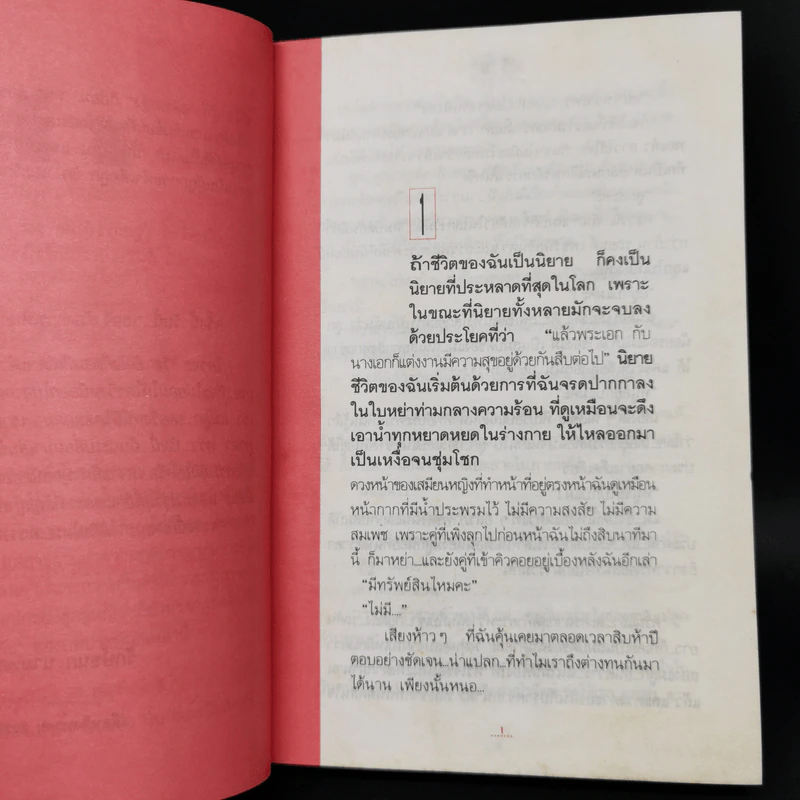 1
ถ้าชีวิตของฉันเป็นนิยาย ก็คงเป็น
นิยายที่ประหลาดที่สุดในโลก เพราะ
ในขณะที่นิยายทั้งหลายมักจะจบลง
ด้วยประโยคที่ว่า “แล้วพระเอก กับ
นางเอกก็แต่งงานมีความสุขอยู่ด้วยกันสืบต่อไป” นิยาย
ชีวิตของฉันเริ่มต้นด้วยการที่ฉันจรดปากกาลง
ในใบหย่าท่ามกลางความร้อน ที่ดูเหมือนจะดึง
เอาน้ำทุกหยาดหยดในร่างกาย ให้ไหลออกมา
เป็นเหงื่อจนชุ่มโชก
ดวงหน้าของเสมียนหญิงที่ทำหน้าที่อยู่ตรงหน้าฉันดูเหมือน
หน้ากากที่มีน้ำประพรมไว้ ไม่มีความสงสัย ไม่มีความ
สมเพช เพราะคู่ที่เพิ่งลุกไปก่อนหน้าฉันไม่ถึงสิบนาทีมา
นี้ ก็มาหย่า...และยังคู่ที่เข้าคิวคอยอยู่เบื้องหลังฉันอีกเล่า
“มีทรัพย์สินไหมคะ”
“ไม่มี....”
เสียงห้าวๆ ที่ฉันคุ้นเคยมาตลอดเวลาสิบห้าปี
ตอบอย่างชัดเจน...น่าแปลก...ที่ทำไมเราถึงต่างทนกันมา
ได้นาน เพียงนั้นหนอ...
1